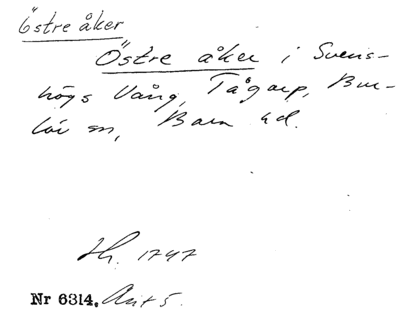 Östre åker
Östre åker i Svens-
högs Vång, Tågarp, Bur-
löv sn, Bara hd.
Lh. 1747
Nr 6314. Akt 5.